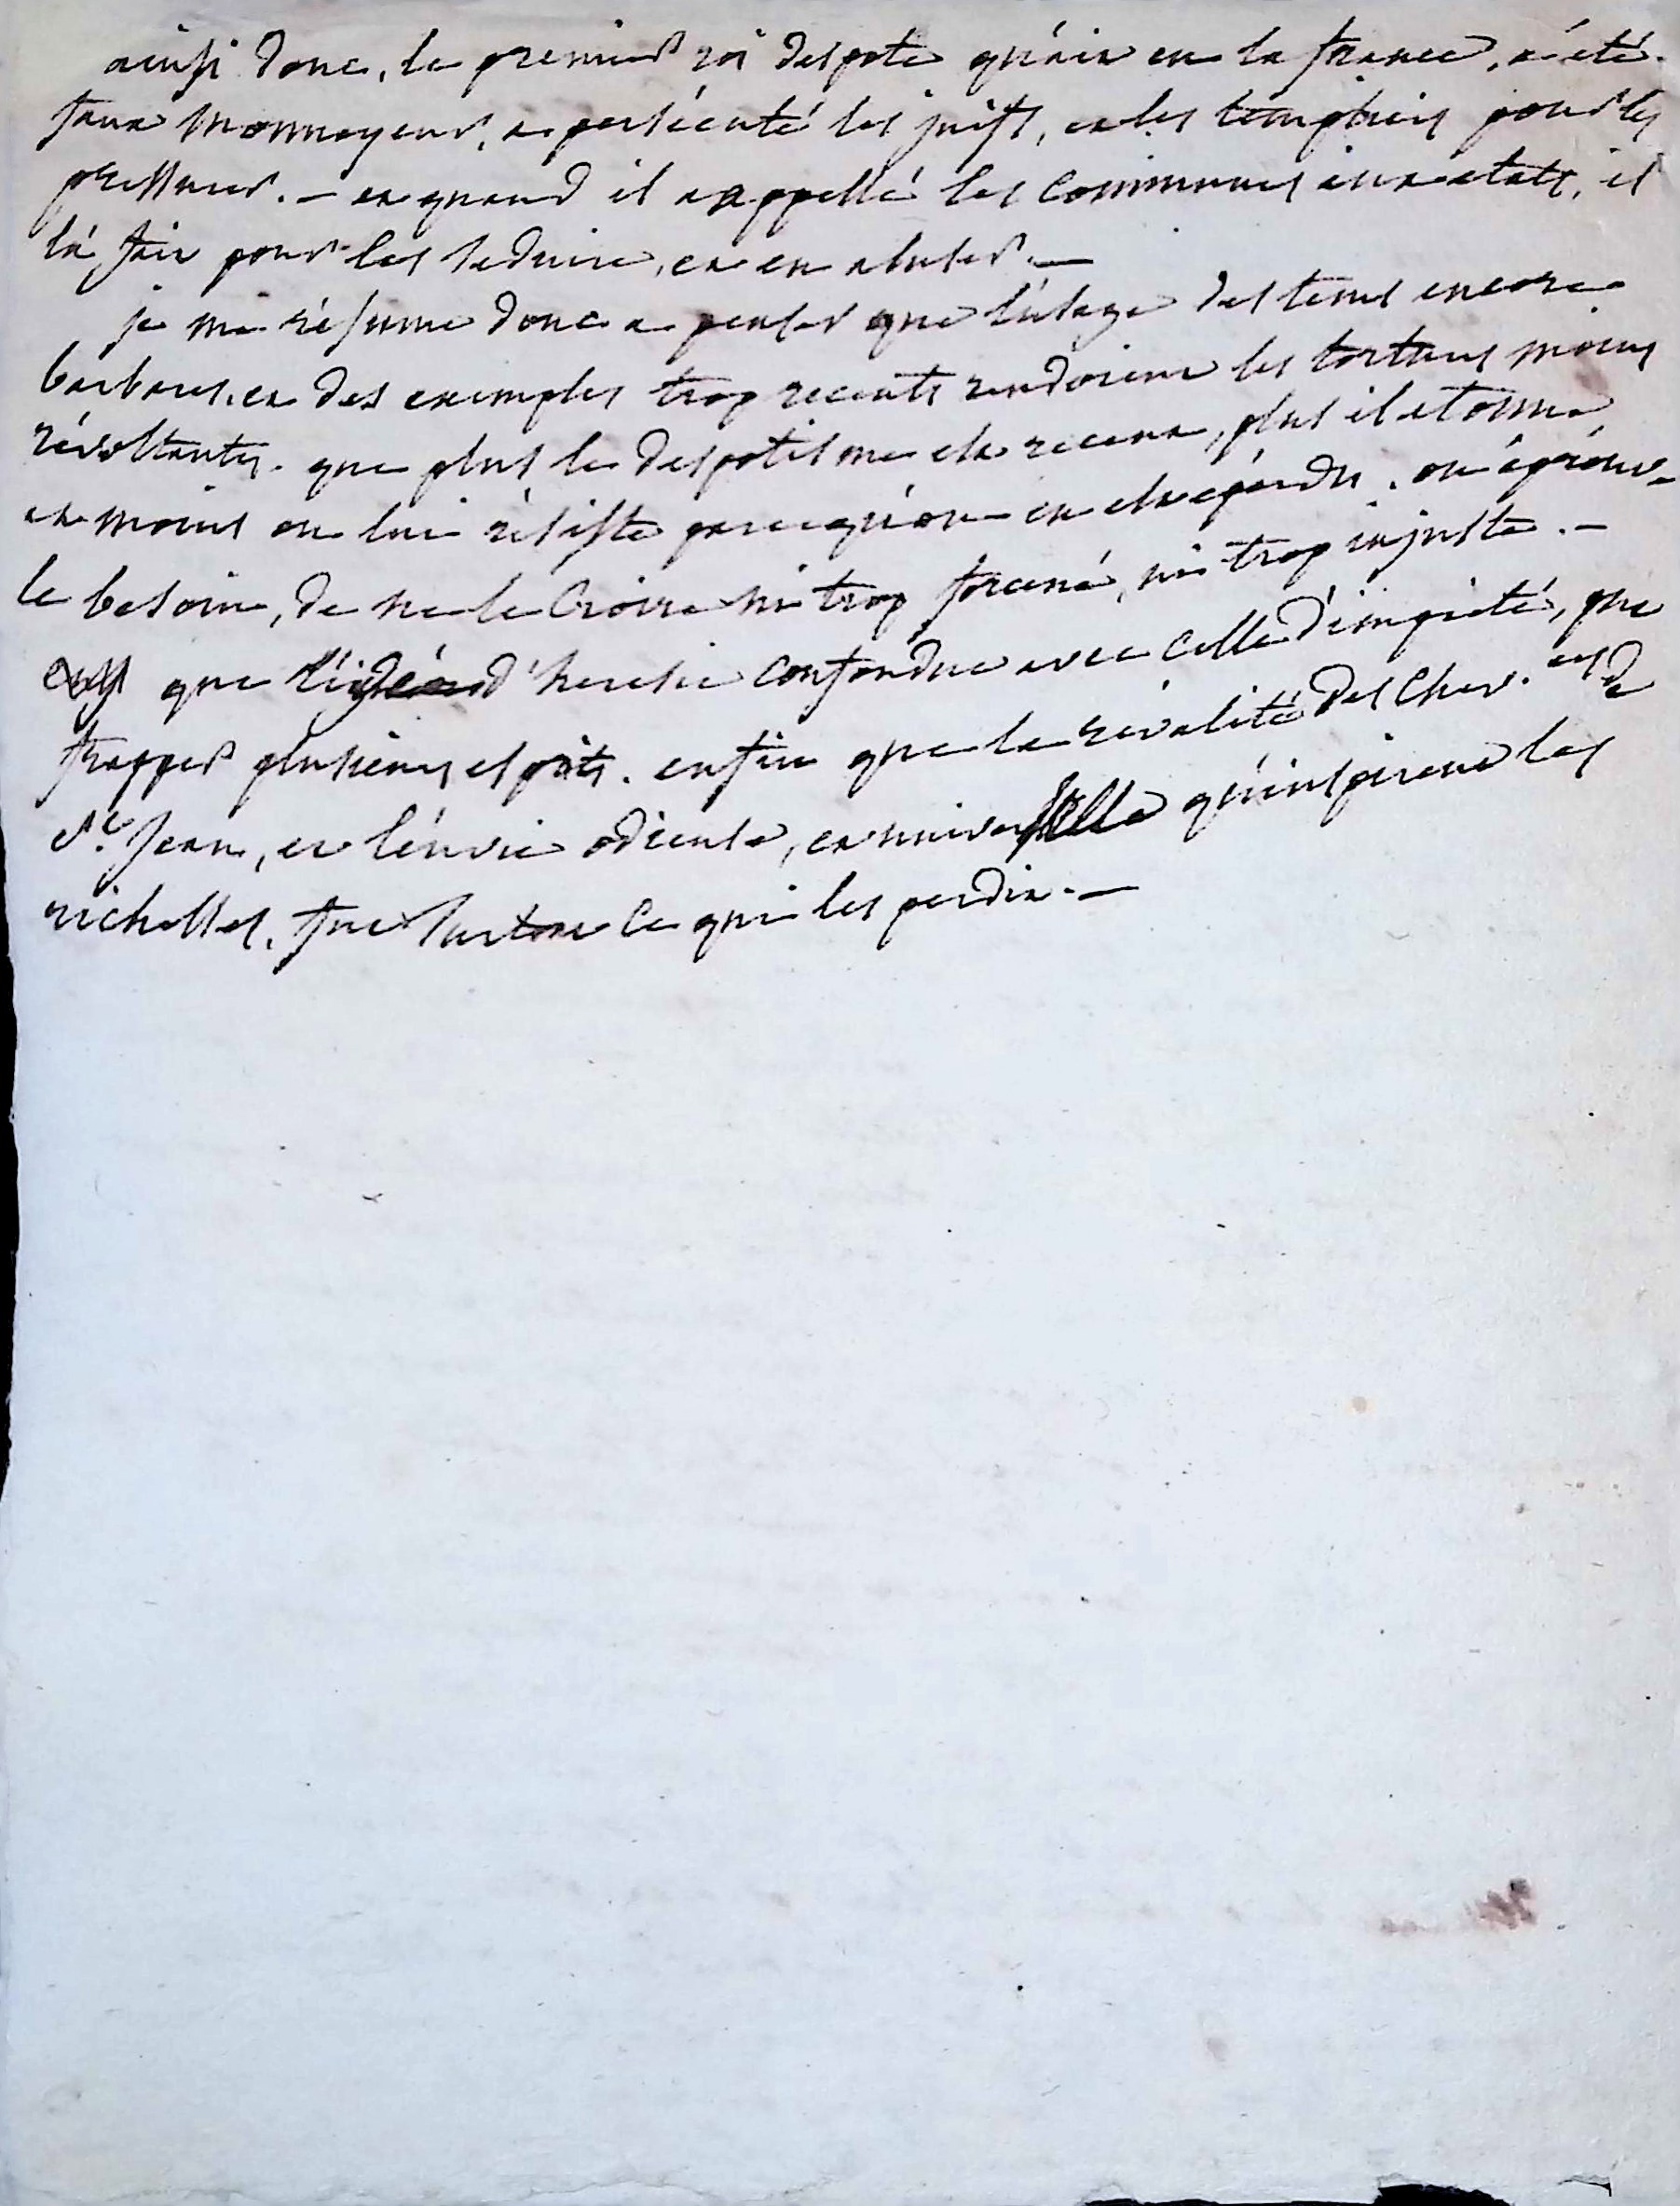 ainsi donc, le premier roi despote qu'ait eu la france, a été
faux monnoyeur, a persécuté les juifs, et les templiers pour les
pressurer. - et quand il a appellé les communes aux etats, il
l'a fait pour les seduire, et en abuser. —
je me résume donc a penser que l'usage des tems encore
barbares, et des exemples trop recents rendoient les tortures moins
révoltantes. que plus le despotisme est recent, plus il etonne,
et moins on lui résiste parcequ'on en est éperdu. on éprouve
le besoin, de ne le croire ni trop forcené, ni trop injuste. -
que l'idée d'heresie confondue avec celle d'impieté, put
frapper plusieurs esprits. enfin que la rivalité des chev.ers de
St. Jean, et l'envie odieuse, et universelle qu'inspirent les
richesses, fut surtout ce qui les perdit. —